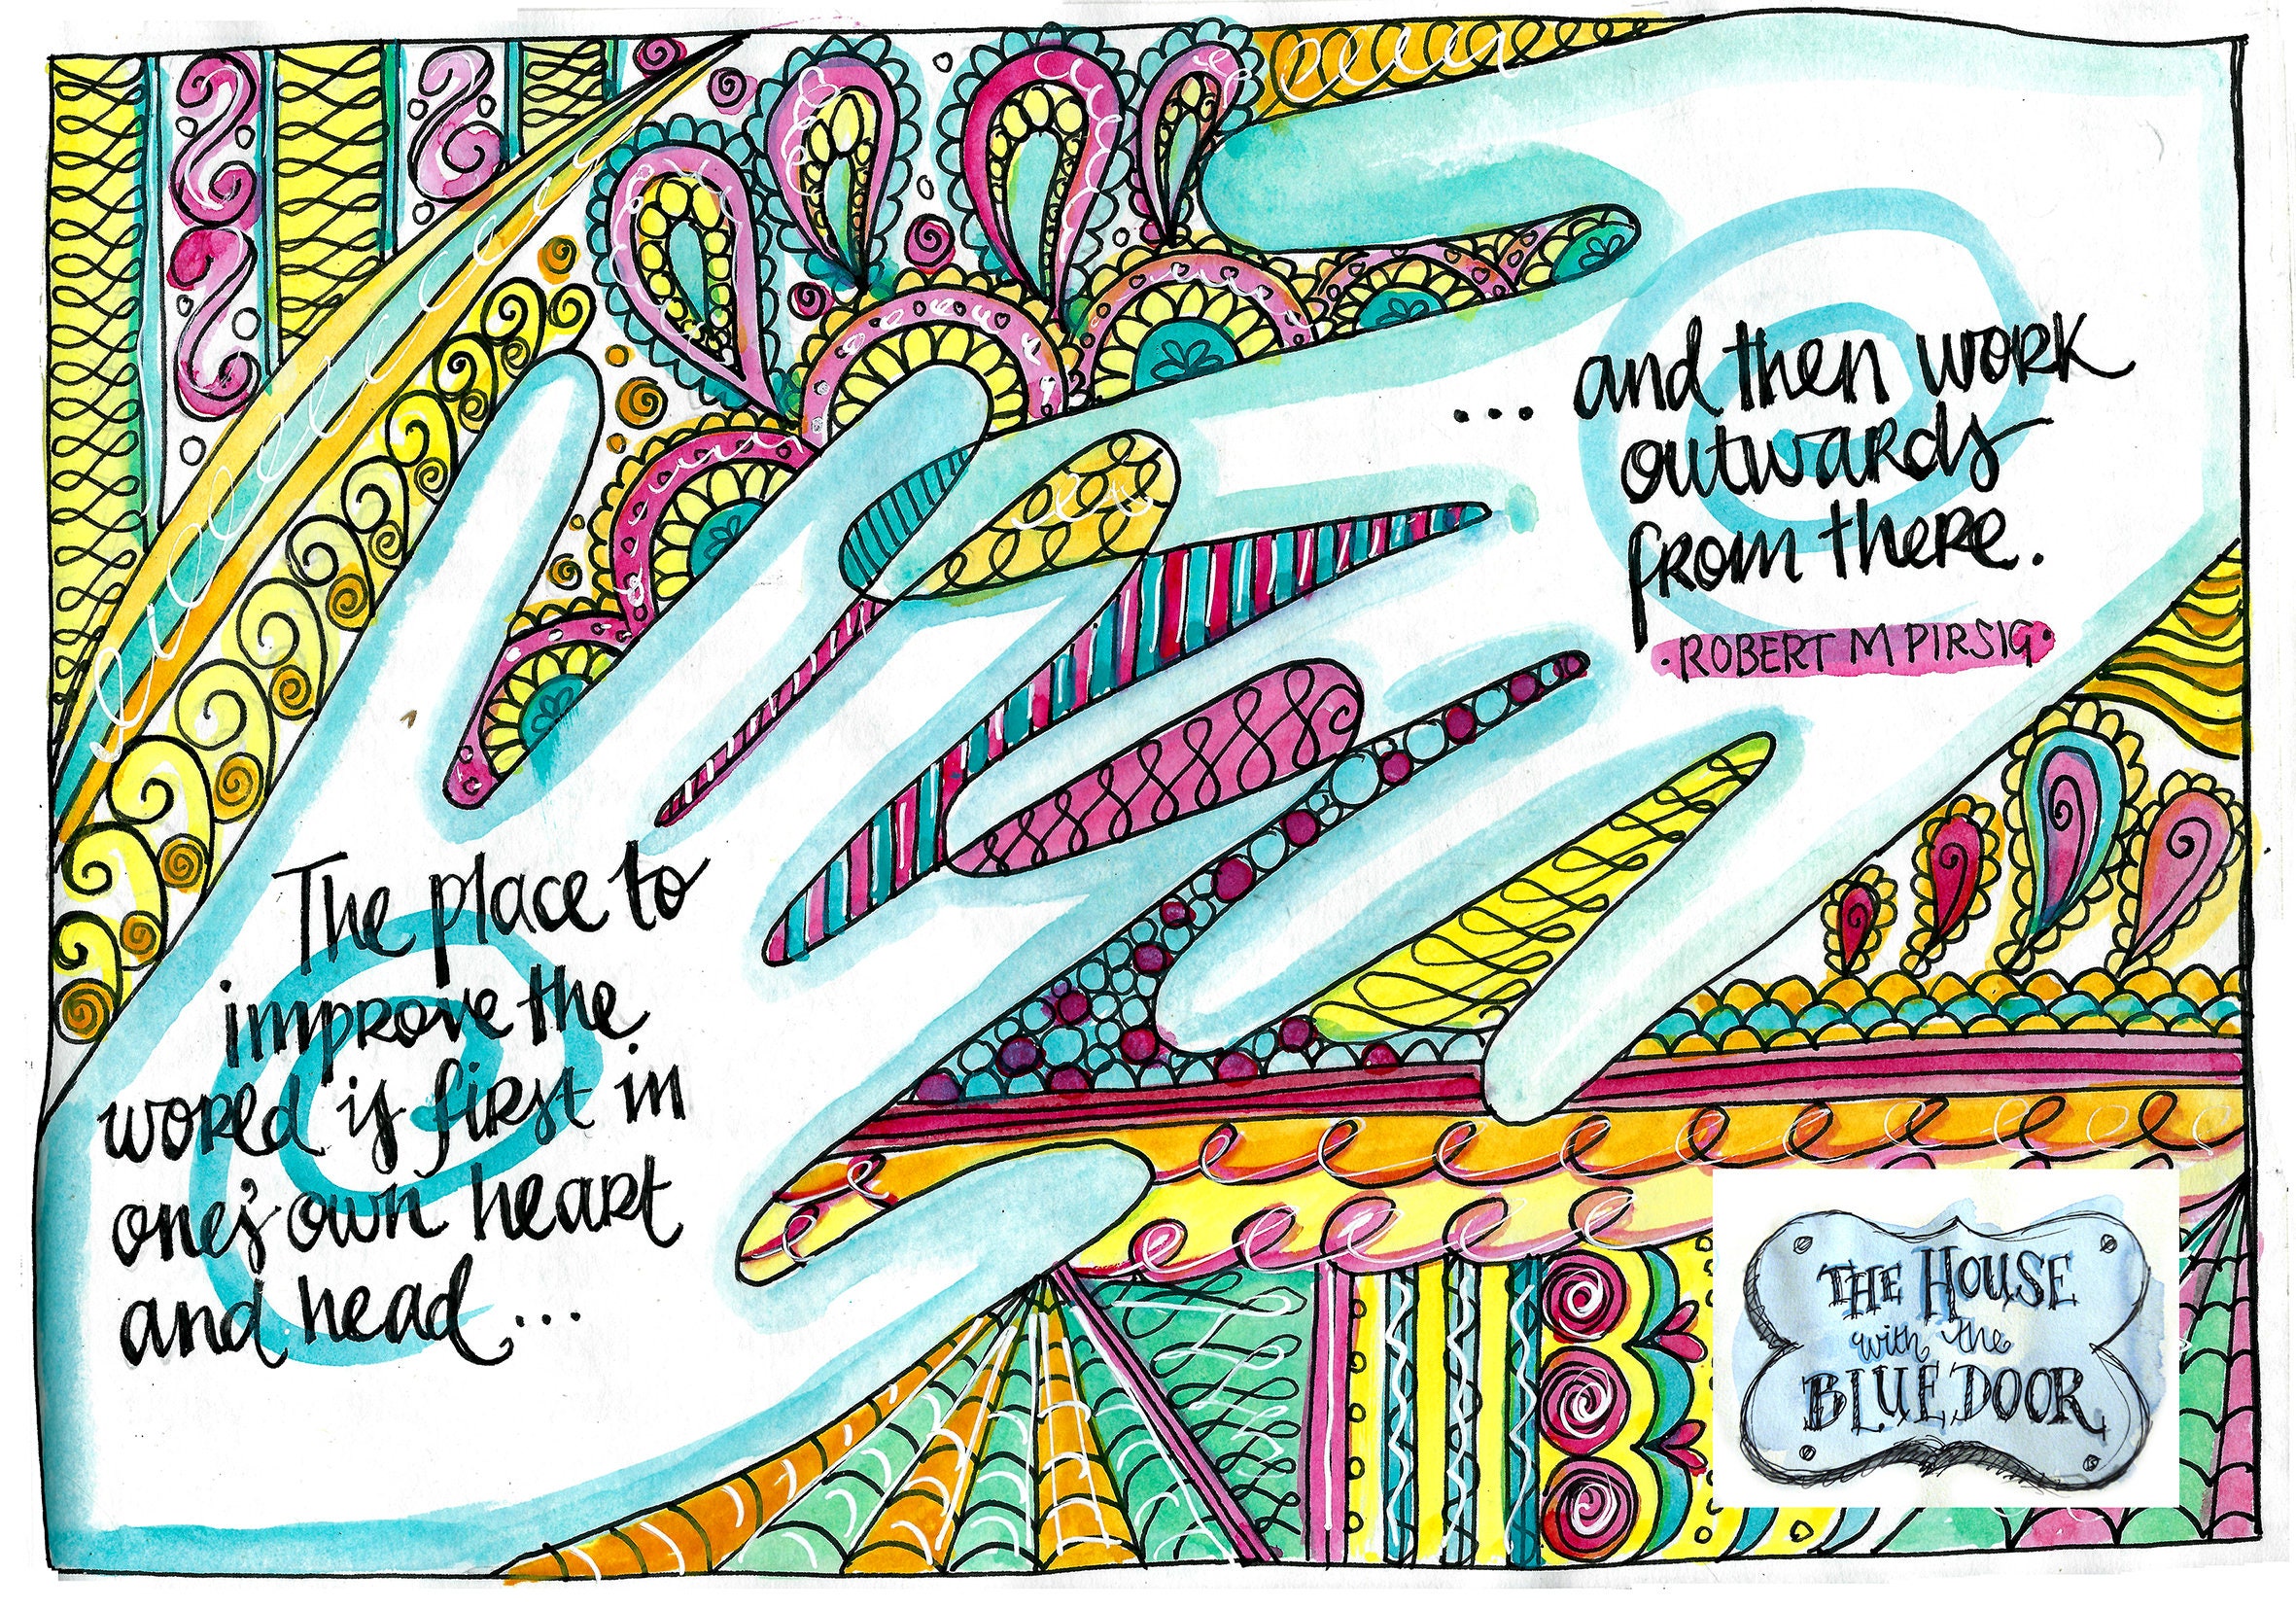 The place to
improve the
world is first in
one's own heart
and head...
... and then work
outwards
from there.
·ROBERT M PIRSIG·
THE HOUSE
with the
BLUE DOOR